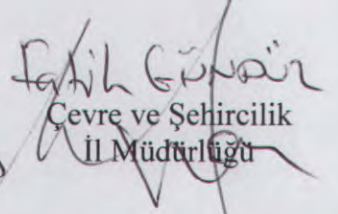 Fatih GÜNDÜZ
Çevre ve Şehircilik
İl Müdürlüğü